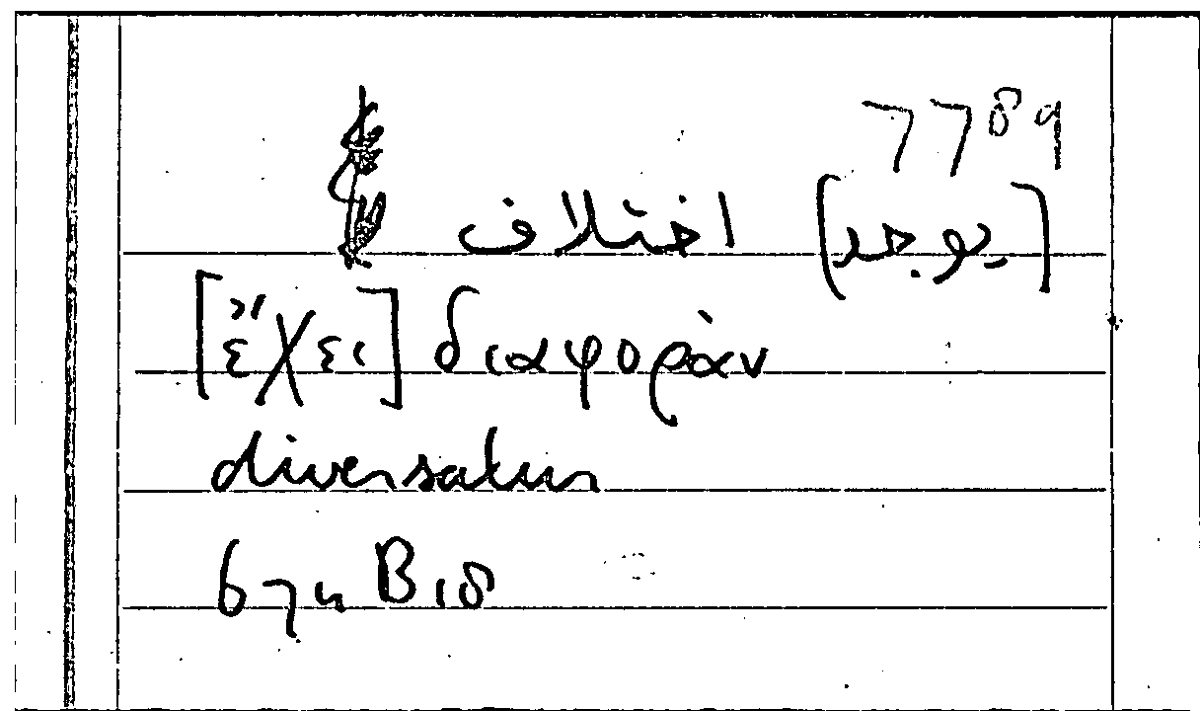 7789
[يوجد] اختلاف
[ἔχει] διαφορὰν
diversatur
674 B 18